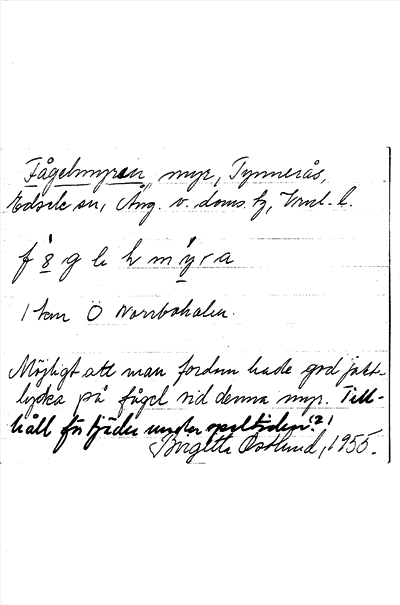 Fågelmyren, myr, Tynnerås,
Edsele sn, Ång. v. doms. tg, Vnrl. l.
f å g l h m y r a
1 km O Norrbohalen.
Möjligt att man fordom hade god jakt-
lycka på fågel vid denna myr. Till-
håll för tjäder under speltiden.(?)
Birgitta Östlund, 1955.